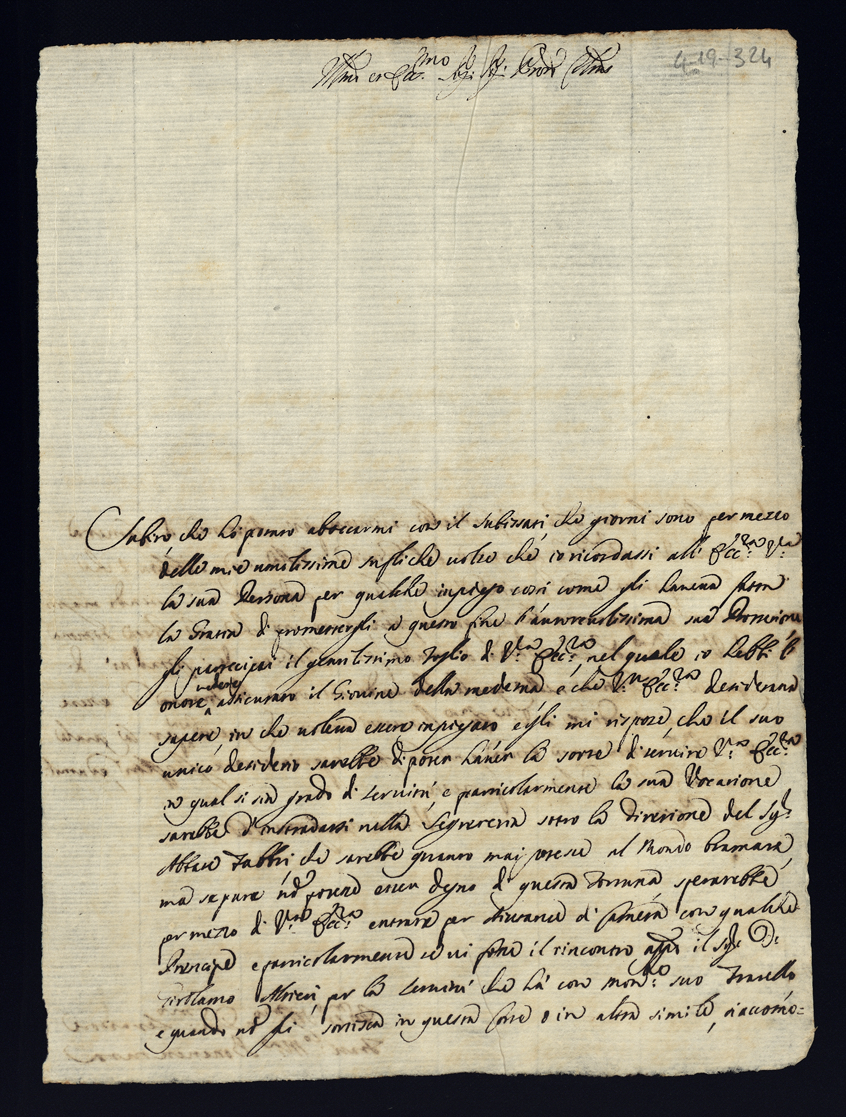 4-19-324
Ill.mo et Ecc.mo Sig.r Sig.r Pron Col.mo
Subito che hò potuto aboccarmi con il Subissati che giorni sono per mezzo
delle mie umilissime supliche volse che io ricordassi all' Ecc.za V.ra
la sua Persona per qualche impiego così come gli haveva fatta
la Grazia di prometterli a questo fine l'autorevolissima sua Protezione
gli partecipai il gentilissimo foglio di V.ra Ecc.za nel quale io hebbi l'
onore vedere assicurato il Giovine della medema e che V.ra Ecc.za desiderava
sapere in che voleva essere impiegato e egli mi rispose, che il suo
unico desiderio sarebbe di poter haver la sorte di servire V.ra Ecc.za
in qual si sia grado di servitù e particolarmente la sua Vocazione
sarebbe d'instradarsi nella Segreteria sotto la direzione del Sig.r
Abbate Fabbri, che sarebbe quanto mai potesse al Mondo bramare,
ma se pure nõ potesse esser degno di questa fortuna sperarebbe
per mezzo di V.ra Ecc.za entrare per aiutante di Camera con qualche
Principe e particolarmente se vi fosse il rincontro app.o il Sig.r D.
Girolamo Altieri per la servitù che hà con mons.re suo Fratello
e quando nõ gli sortisca in questa Corte o in altra simile, siaccomo=